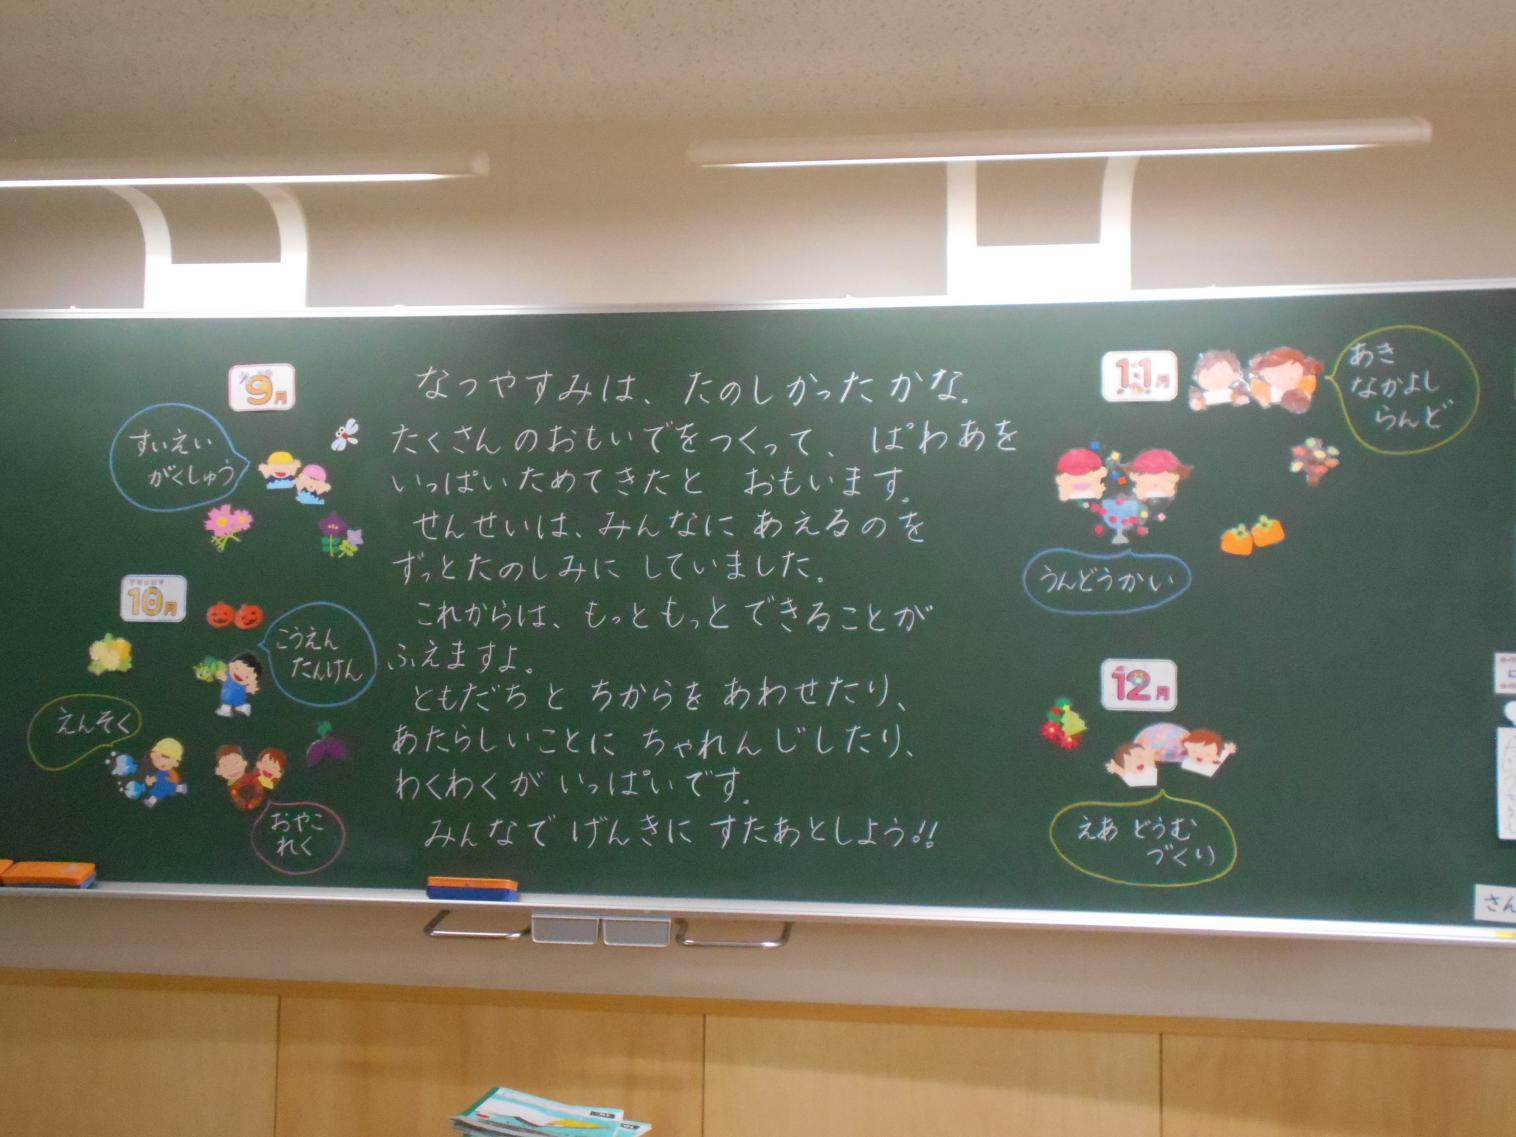 9月
すいえい
がくしゅう
10月
こうえん
たんけん
えんそく
おやこ
れく
なつやすみは、たのしかったかな。
たくさんのおもいでをつくって、ぱわあを
いっぱいためてきたと おもいます。
せんせいは、みんなに あえるのを
ずっとたのしみに していました。
これからは、もっともっとできることが
ふえますよ。
ともだちと ちからを あわせたり、
あたらしいことに ちゃれんじしたり、
わくわくが いっぱいです。
みんなで げんきに すたあとしよう!!
11月
あき
なかよし
らんど
うんどうかい
12月
えあ どうむ
づくり
さん